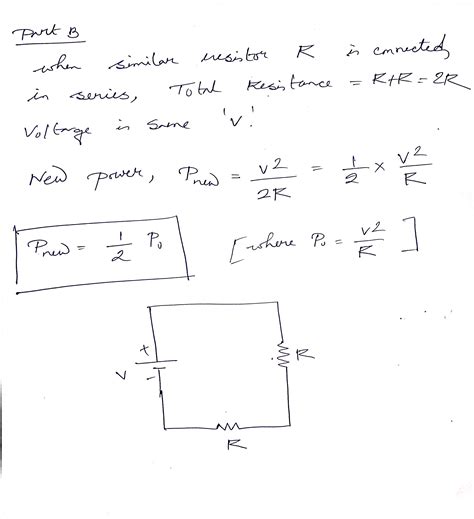 Part B
when similar resistor R is connected,
in series, Total Resistance = R+R = 2R
Voltage is same 'V'.
New power, Pnew = V²/2R = 1/2 × V²/R
Pnew = 1/2 P₀ [where P₀ = V²/R]
+
V
-
R
R